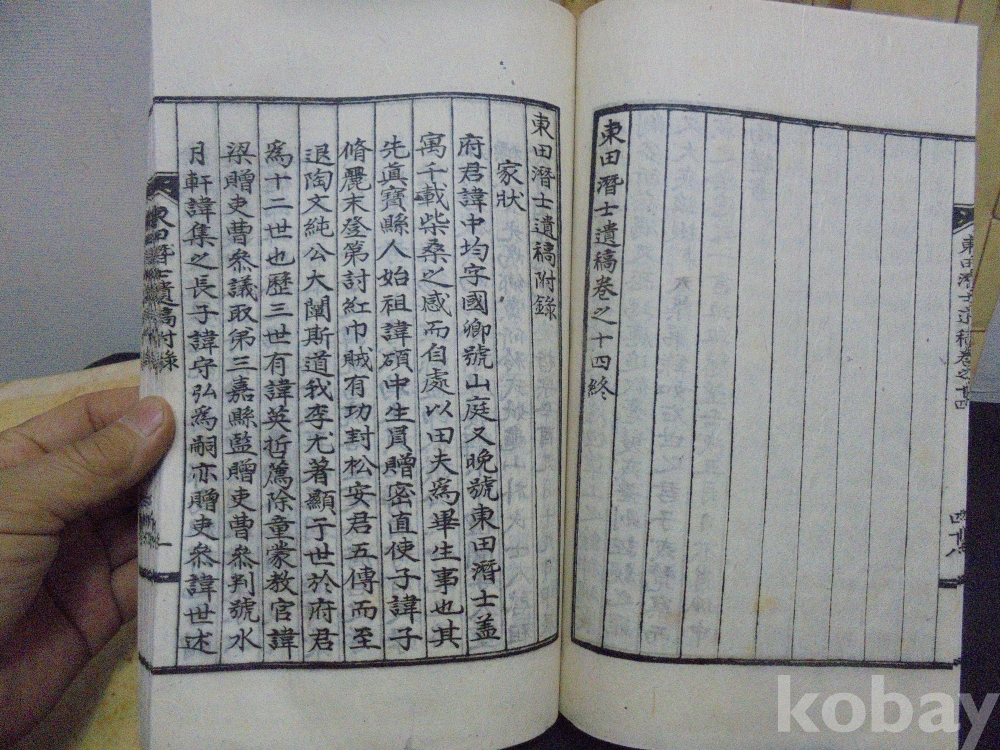 東田潛士遺稿卷之十四終
東田潛士遺稿卷之十四
東田潛士遺稿附錄
家狀
府君諱中均字國卿號山庭又晩號東田潛士盖
寓千載柴桑之感而自處以田夫爲畢生事也其
先眞寶縣人始祖諱碩中生員贈密直使子諱子
脩麗末登第討紅巾賊有功封松安君五傳而至
退陶文純公大闡斯道我李尤著顯于世於府君
爲十二世也歷三世有諱英哲薦除童蒙教官諱
梁贈吏曹參議取第三嘉縣監贈吏曹參判號水
月軒諱集之長子諱守弘爲嗣亦贈吏參諱世述
東田潛士遺稿附錄
一
kobay